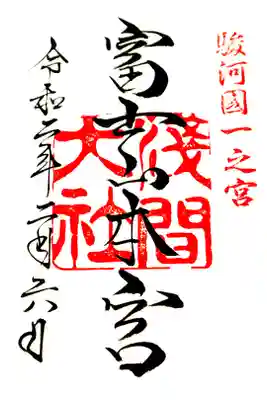 駿河國一之宮
富士山本宮
浅間
大社
令和二年二月六日